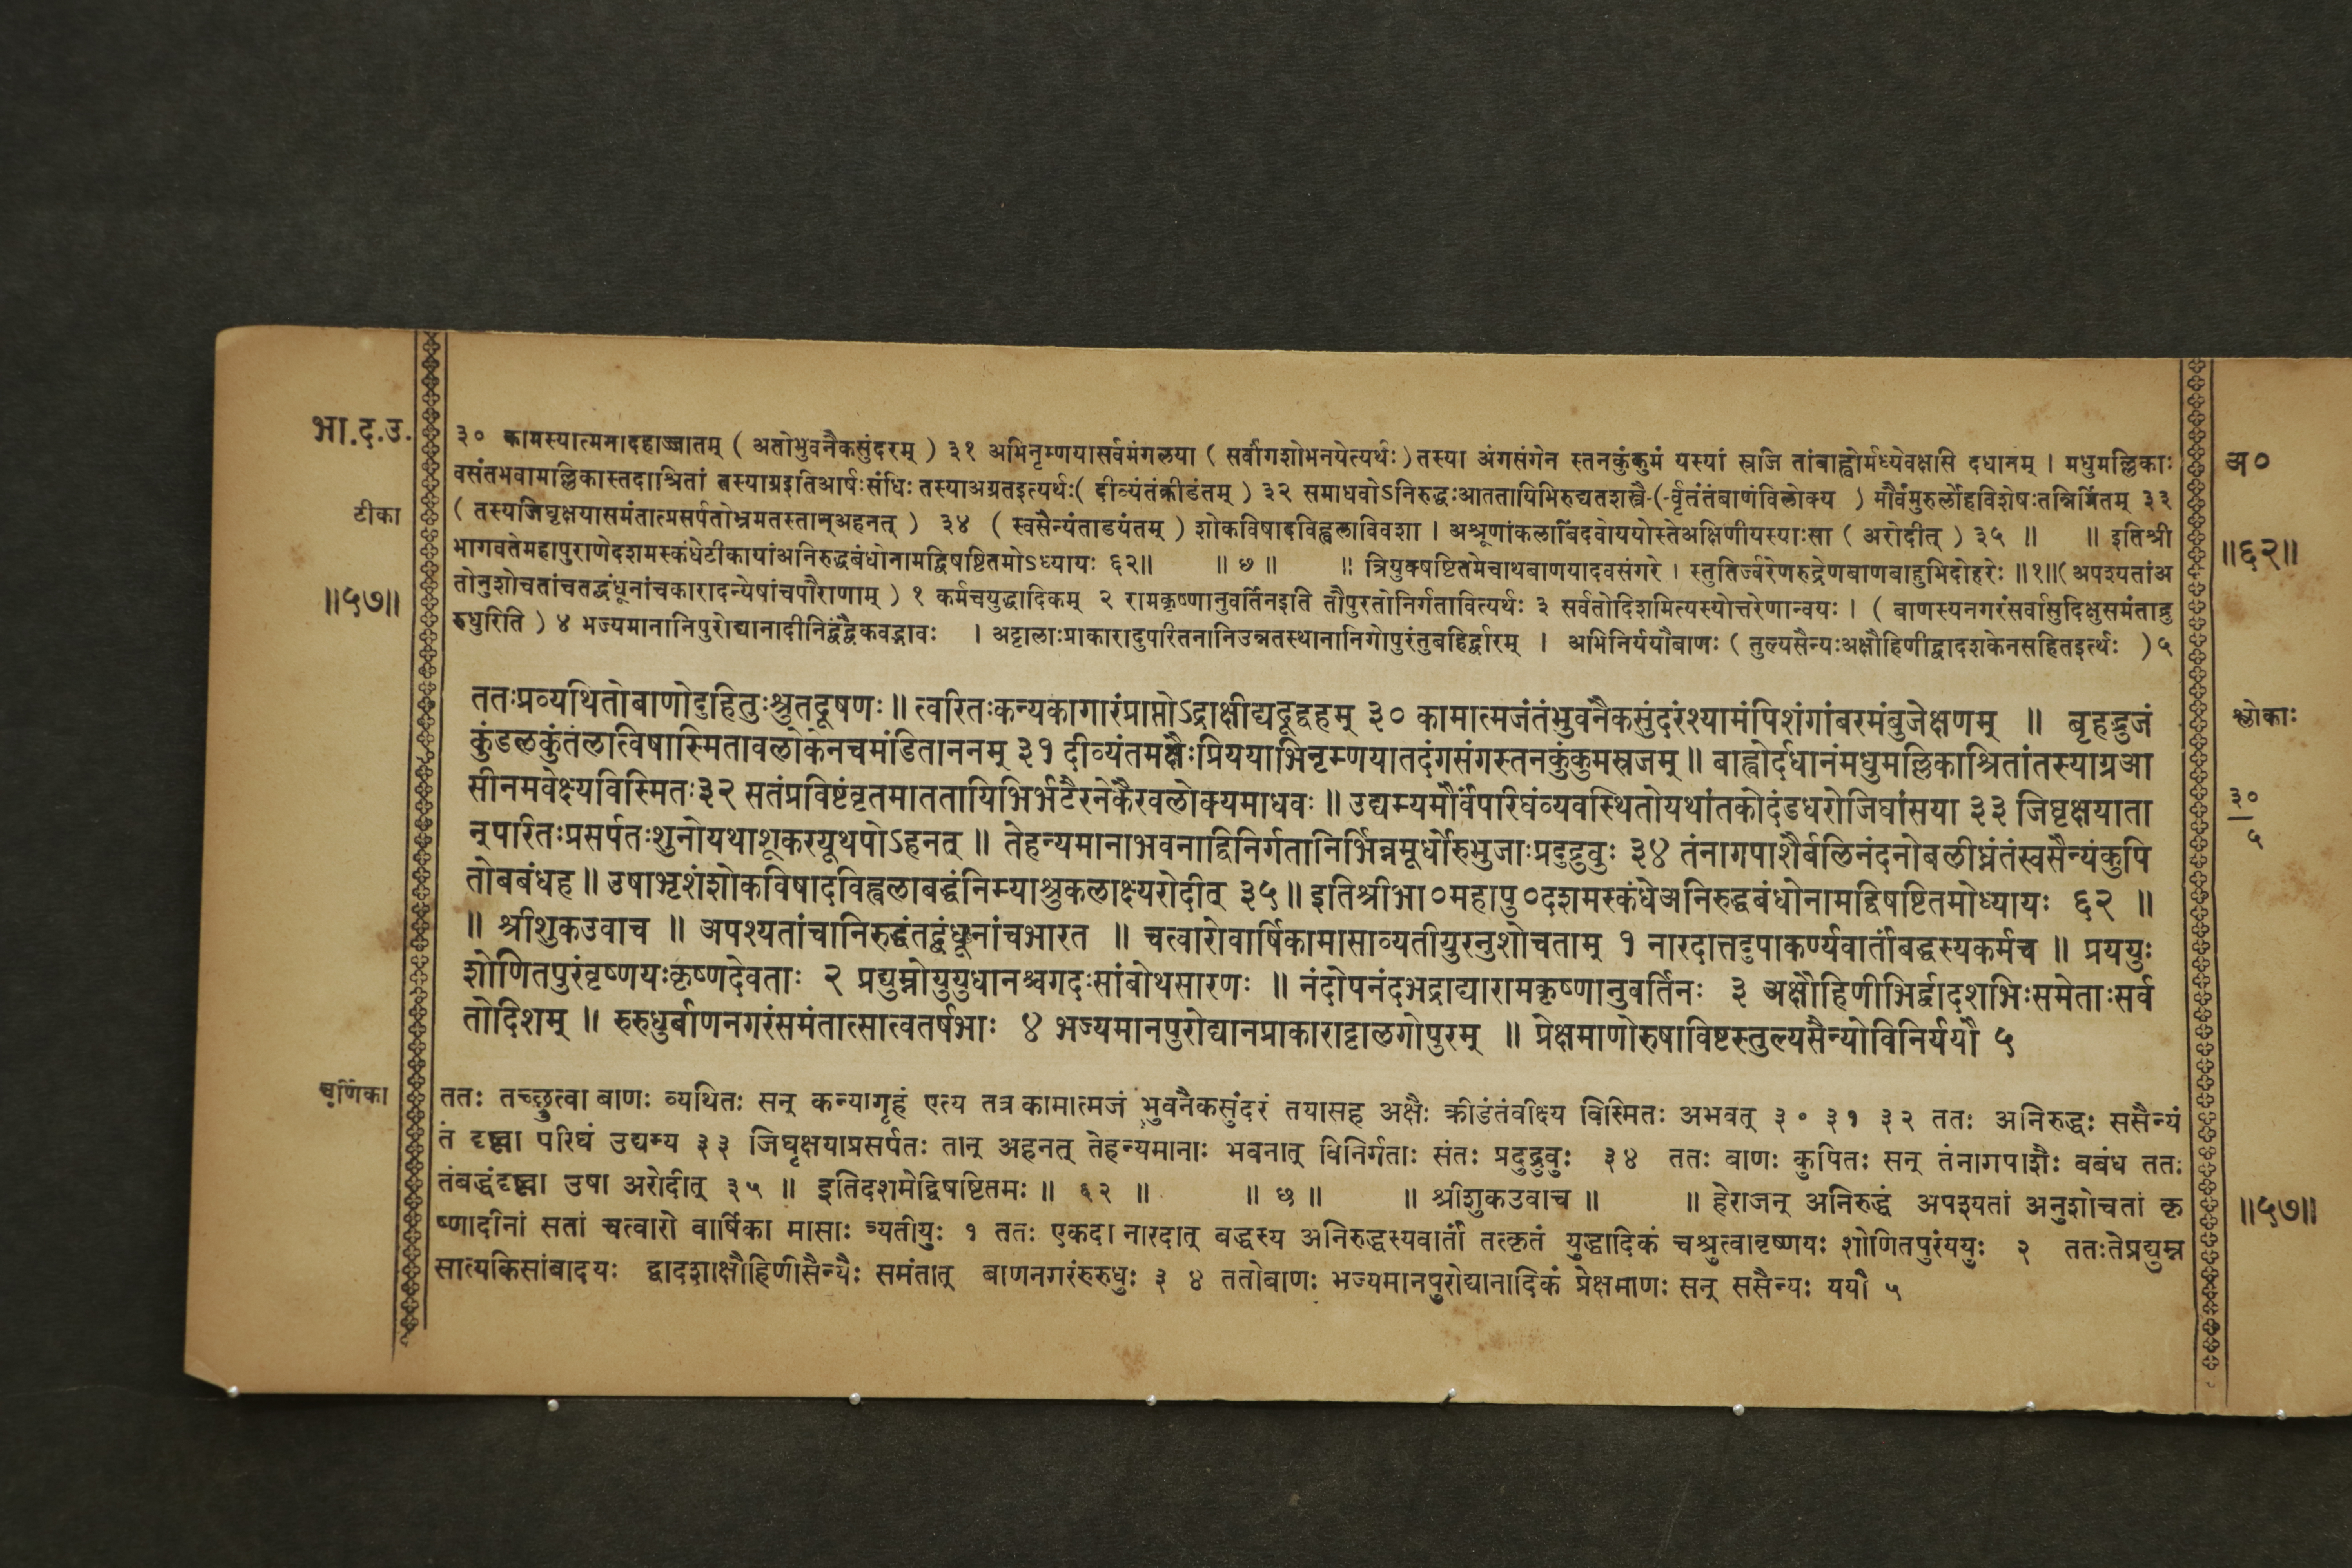 भा.द.उ.
टीका
॥५७॥
३० कामस्यात्मनादहाज्जातम् ( अतोभुवनैकसुंदरम् ) ३१ अभिनृम्णयासर्वमंगलया ( सर्वांगशोभनयेत्यर्थः ) तस्या अंगसंगेन स्तनकुंकुमं यस्यां स्रजि तांबाह्वोर्मध्येवक्षसि दधानम् । मधुमल्लिकाः
वसंतभवामल्लिकास्तदाश्रितां तस्याग्रइतिआर्षःसंधिः तस्याअग्रतइत्यर्थः( दीव्यंतंक्रीडंतम् ) ३२ समाधवोऽनिरुद्धःआततायिभिरुद्यतशस्त्रै-(-र्वृतंतंबाणंविलोक्य ) मौर्वंमुरुर्लोहविशेषःतन्निर्मितम् ३३
( तस्यजिघृक्षयासमंतात्प्रसर्पतोभ्रमतस्तान्अहनत् ) ३४ ( स्वसैन्यंताडयंतम् ) शोकविषादविह्वलाविवशा । अश्रूणांकलाबिंदवोययोस्तेअक्षिणीयस्याःसा ( अरोदीत् ) ३५ ॥ ॥ इतिश्री
भागवतेमहापुराणेदशमस्कंधेटीकायांअनिरुद्धबंधोनामद्विषष्टितमोऽध्यायः ६२॥ ॥ ७ ॥ ॥ त्रियुक्षष्टितमेचाथबाणयादवसंगरे । स्तुतिर्ज्वरेणरुद्रेणबाणबाहुभिदोहरेः ॥१॥( अपश्यतांअ
तोनुशोचतांचतद्बंधूनांचकारादन्येषांचपौराणाम् ) १ कर्मचयुद्धादिकम् २ रामकृष्णानुवर्तिनइति तौपुरतोनिर्गतावित्यर्थः ३ सर्वतोदिशमित्यस्योत्तरेणान्वयः । ( बाणस्यनगरंसर्वासुदिक्षुसमंताद्रु
रुधुरिति ) ४ भज्यमानानिपुरोद्यानादीनिद्वंद्वैकवद्भावः । अट्टालाःप्राकारादुपरितनानिउन्नतस्थानानिगोपुरंतुबहिर्द्वारम् । अभिनिर्ययौबाणः ( तुल्यसैन्यःअक्षौहिणीद्वादशकेनसहितइर्त्थः ) ५
अ०
॥६२॥
ततःप्रव्यथितोबाणोदुहितुःश्रुतदूषणः ॥ त्वरितःकन्यकागारंप्राप्तोऽद्राक्षीद्यदूद्वहम् ३० कामात्मजंतंभुवनैकसुंदरंश्यामंपिशंगांबरमंबुजेक्षणम् ॥ बृहद्भुजं
कुंडलकुंतंलात्विषास्मितावलोकेनचमंडिताननम् ३१ दीव्यंतमक्षैःप्रिययाभिनृम्णयातदंगसंगस्तनकुंकुमस्रजम् ॥ बाह्वोर्दधानंमधुमल्लिकाश्रितांतस्याग्रआ
सीनमवेक्ष्यविस्मितः३२ सतंप्रविष्टंवृतमाततायिभिर्भटैरनेकैरवलोक्यमाधवः ॥ उद्यम्यमौर्वंपरिघंव्यवस्थितोयथांतकोदंडधरोजिघांसया ३३ जिघृक्षयाता
न्परितःप्रसर्पतःशुनोयथाशूकरयूथपोऽहनत् ॥ तेहन्यमानाभवनाद्विनिर्गतानिर्भिन्नमूर्धोरुभुजाःप्रदुद्रुवुः ३४ तंनागपाशैर्बलिनंदनोबलीघ्नंतंस्वसैन्यंकुपि
तोबबंधह ॥ उषाभृशंशोकविषादविह्वलाबद्धंनिम्याश्रुकलाक्ष्यरोदीत् ३५॥ इतिश्रीभा०महापु०दशमस्कंधेअनिरुद्धबंधोनामद्विषष्टितमोध्यायः ६२ ॥
॥ श्रीशुकउवाच ॥ अपश्यतांचानिरुद्धंतद्बंधूनांचभारत ॥ चत्वारोवार्षिकामासाव्यतीयुरनुशोचताम् १ नारदात्तदुपाकर्ण्यवार्तांबद्धस्यकर्मच ॥ प्रययुः
शोणितपुरंवृष्णयःकृष्णदेवताः २ प्रद्युम्नोयुयुधानश्चगदःसांबोथसारणः ॥ नंदोपनंदभद्राद्यारामकृष्णानुवर्तिनः ३ अक्षौहिणीभिर्द्वादशभिःसमेताःसर्व
तोदिशम् ॥ रुरुधुर्बाणनगरंसमंतात्सात्वतर्षभाः ४ भज्यमानपुरोद्यानप्राकाराट्टालगोपुरम् ॥ प्रेक्षमाणोरुषाविष्टस्तुल्यसैन्योविनिर्ययौ ५
श्लोकाः
३०
५
चूर्णिका
ततः तच्छ्रुत्वा बाणः व्यथितः सन् कन्यागृहं एत्य तत्र कामात्मजं भुवनैकसुंदरं तयासह अक्षैः क्रीडंतंवीक्ष्य विस्मितः अभवत् ३० ३१ ३२ ततः अनिरुद्धः ससैन्यं
तं दृष्ट्वा परिघं उद्यम्य ३३ जिघृक्षयाप्रसर्पतः तान् अहनत् तेहन्यमानाः भवनात् विनिर्गताः संतः प्रदुद्रुवुः ३४ ततः बाणः कुपितः सन् तंनागपाशैः बबंध ततः
तंबद्धंदृष्ट्वा उषा अरोदीत् ३५ ॥ इतिदशमेद्विषष्टितमः ॥ ६२ ॥ ॥ छ ॥ ॥ श्रीशुकउवाच ॥ ॥ हेराजन् अनिरुद्धं अपश्यतां अनुशोचतां कृ
ष्णादीनां सतां चत्वारो वार्षिका मासाः व्यतीयुः १ ततः एकदा नारदात् बद्धस्य अनिरुद्धस्यवार्तां तत्कृतं युद्धादिकं चश्रुत्वावृष्णयः शोणितपुरंययुः २ ततःतेप्रद्युम्न
सात्यकिसांबादयः द्वादशाक्षौहिणीसैन्यैः समंतात् बाणनगरंरुरुधुः ३ ४ ततोबाणः भज्यमानपुरोद्यानादिकं प्रेक्षमाणः सन् ससैन्यः ययौ ५
॥५७॥